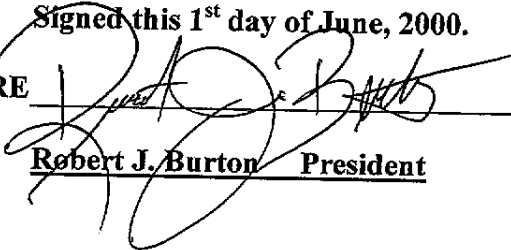 Signed this 1st day of June, 2000.
RE
Robert J. Burton President